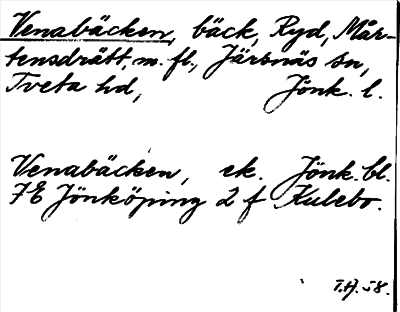 Venabäcken, bäck, Ryd, Mår-
tensdrätt, m. fl., Järsnäs sn,
Tveta hd, Jönk. l.
Venabäcken, ek. Jönk. bl.
7E Jönköping 2 f Kulebo.
T.H. 58.